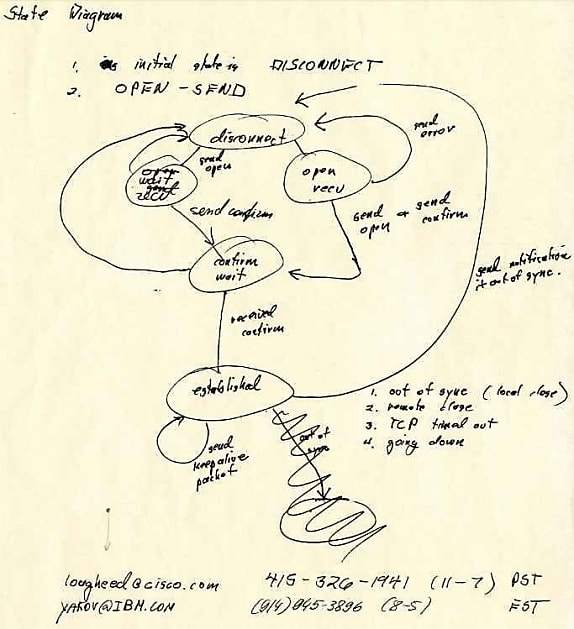 State Diagram
1. initial state is DISCONNECT
2. OPEN - SEND
disconnect
send
error
send
open
open
wait
sent
recv
open
recv
send confirm
send or send
open confirm
confirm
wait
send notification
if out of sync.
received
confirm
established
1. out of sync (local close)
2. remote close
3. TCP timed out
4. going down
out of
sync
send
keepalive
packet
lougheed@cisco.com 415-326-1941 (11-7) PST
YAKOV@IBM.COM (914)945-3896 (8-5) EST